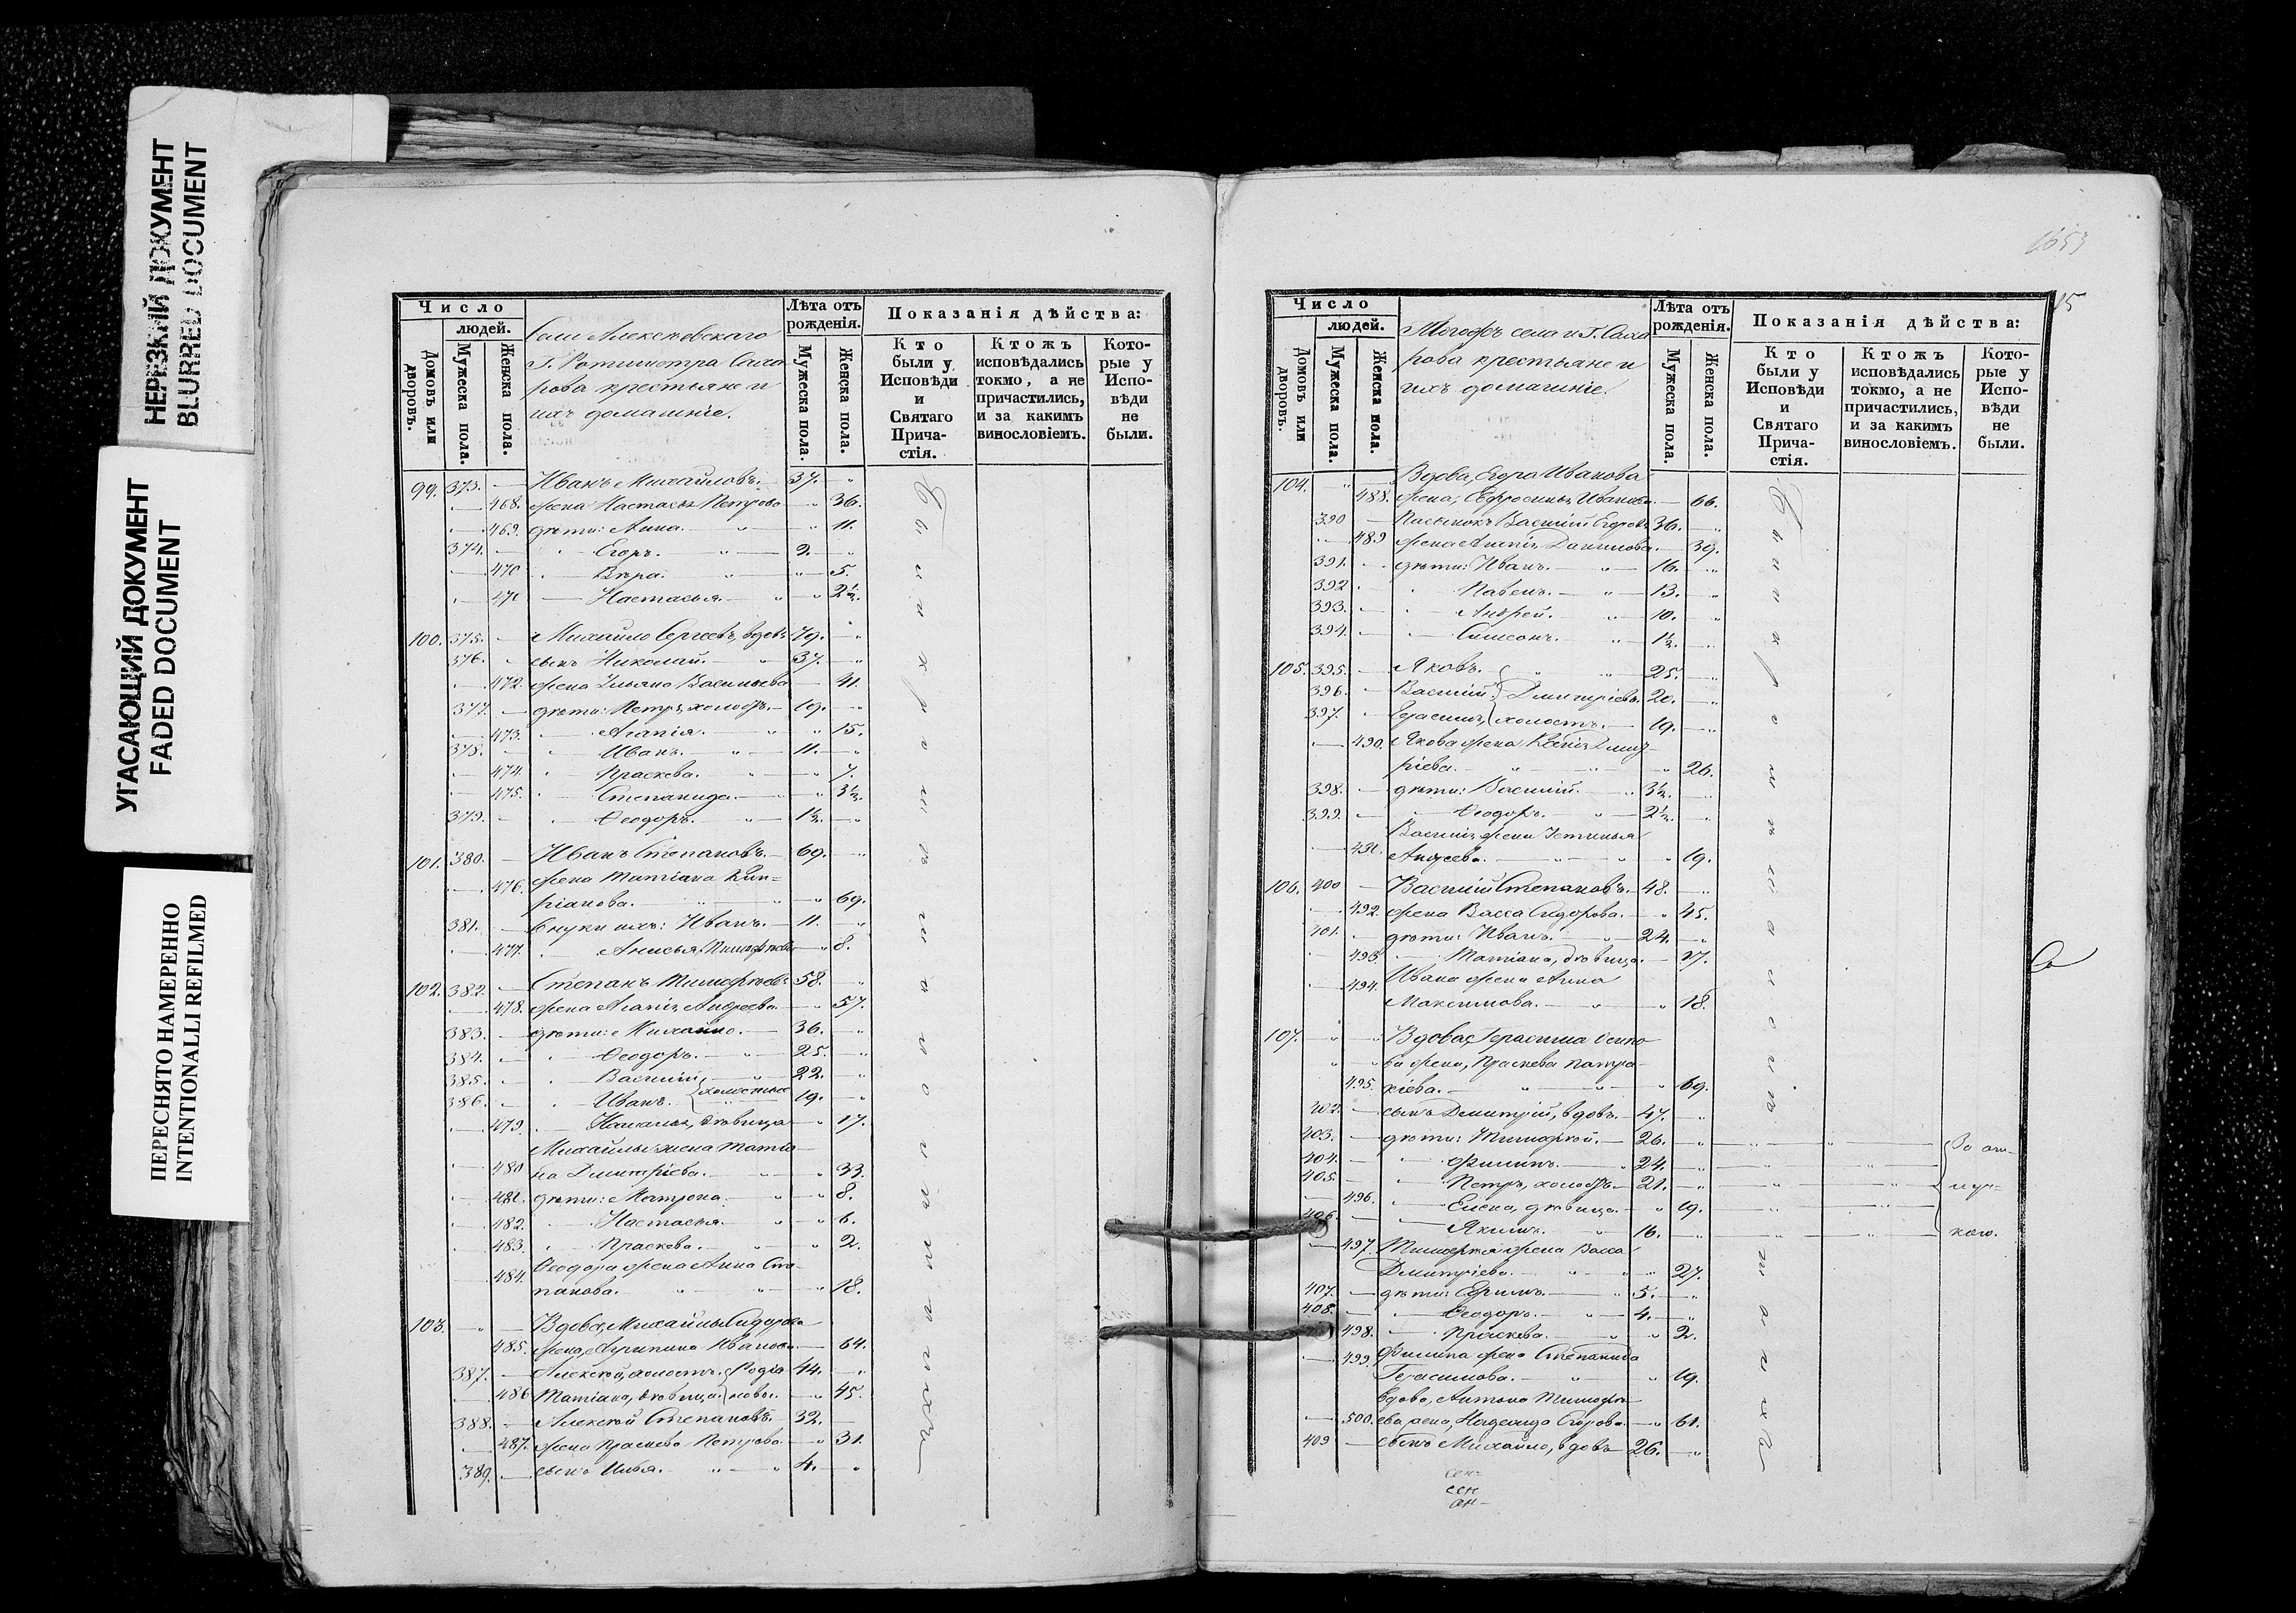 НЕРЕЗКИЙ ДОКУМЕНТ
BLURRED DOCUMENT
УГАСАЮЩИЙ ДОКУМЕНТ
FADED DOCUMENT
ПЕРЕСНЯТО НАМЕРЕННО
INTENTIONALLI REFILMED
Число
людей.
Домовъ или дворовъ.
Мужеска пола.
Женска пола.
Села Алексѣевскаго
Г. Ротмистра Саха
рова крестьяне и
ихъ домашніе.
Лѣта отъ рожденія.
Мужеска пола.
Женска пола.
Показанія дѣйства:
Кто были у Исповѣди и Святаго Прича-стія.
Ктожъ исповѣдались токмо, а не причастились, и за какимъ винословіемъ.
Кото-рые у Испо-вѣди не были.
99. 373. — Иванъ Михайловъ. 37. "
468. жена Настасья Петрова " 36.
469. дѣти: Анна. " " 11.
374. — Егоръ. " 9. "
470 Вѣра. " " 5.
471 Настасья. " " 2½.
100. 375. — Михайло Сергѣевъ, вдовъ 79. "
376. сынъ Николай. " 37. "
472. жена Ульяна Васильева 41.
377. — дѣти: Петръ, холостъ. 19. "
473. Агапія. " " 15.
378. Иванъ. " 11. "
474. Праскева. " " 7.
475. Степанида. " 3½.
379. Ѳеодоръ. " 1½. "
101. 380. — Иванъ Степановъ. 69. "
476. жена Татіана Кип=
ріанова. " " " 69.
381. — Внуки ихъ: Иванъ. 11. "
477. Анисья Тимофѣевы " 8.
102. 382. — Степанъ Тимофѣевъ 58. "
478. жена Агапія Андреева " 57.
383. — дѣти: Михайло. 36. "
384. — Ѳеодоръ. " 25. "
385. — Василій " 22. "
386. — Иванъ. холостые 19. "
479. Наталья, дѣвица " 17.
Михайлы жена Татіа
480 на Дмитріева. " " 33.
481. дѣти: Матрона. " " 8.
482. Настасья. " " 6.
483. Праскева. " " 2.
Ѳеодора жена Анна Сте
484. панова. " " " 18.
103. " — Вдова, Михайлы Сидорова
485. жена, Агрипина Иванова. 64.
387. — Алексѣй, холостъ. Родіо 44. "
486 Татіана, дѣвица. новы. " 45.
388. — Алексѣй Степановъ. 32.
487. жена Праскева Петрова. " 31.
389. — сынъ Илья. " " 4. "
1653
15
Число
людей.
Домовъ или дворовъ.
Мужеска пола.
Женска пола.
Тогожъ села и Г. Саха
рова крестьяне и
ихъ домашніе.
Лѣта отъ рожденія.
Мужеска пола.
Женска пола.
Показанія дѣйства:
Кто были у Исповѣди и Святаго Прича-стія.
Ктожъ исповѣдались токмо, а не причастились, и за какимъ винословіемъ.
Кото-рые у Испо-вѣди не были.
104. " Вдова, Егора Иванова
488. жена, Ефросинья Иванова. 66.
390 — Пасынокъ Василій Егоровъ 36. "
489 жена Агапія Данилова. 39.
391. дѣти: Иванъ. " 16. "
392 Павелъ. " 13. "
393. Андрей. " 10. "
394. Симеонъ. " 1½. "
105. 395. — Яковъ. " " 25. "
396. — Василій. Дмитріевы. 20. "
397. Герасимъ, холостъ. 19. "
490. Якова жена Ксенія Дмит-
ріева. " " " 26.
398. — дѣти: Василій. " 3½. "
399. Ѳеодоръ. " 2½. "
Василія жена Устинья
491. Андреева. " " " 19.
106. 400 — Василій Степановъ. 48. "
492. жена Васса Сидорова. " 45.
401. дѣти: Иванъ. " 24. "
493. Татіана, дѣвица. 17.
Ивана жена Анна
494. Максимова. " " 18.
107. " " Вдова, Герасима Осипо
" " ва жена, Праскева Патри
495. кіева. " " " 69.
402. — сынъ Дмитрій, вдовъ. 47. "
403. — дѣти: Тимофей. 26. " " "
404. Филипъ. " 24. " " " За от-
405. Петръ, холостъ. 21. " " " луч=
496. Елена, дѣвица. " 19. "
406. — Якимъ. " 16. " " " кою.
497. Тимофея жена Васса
Дмитріева. " " " 27.
407. — дѣти: Ефимъ. " 5. "
408. — Ѳеодоръ. " 4. "
498. Праскева. " " 2.
499. Филипа жена Степанида
Герасимова. " " 19.
вдова, Антона Тимофѣ
500. ева жена, Надежда Егорова. " 61.
409 — сынъ Михайло, вдовъ 26. "